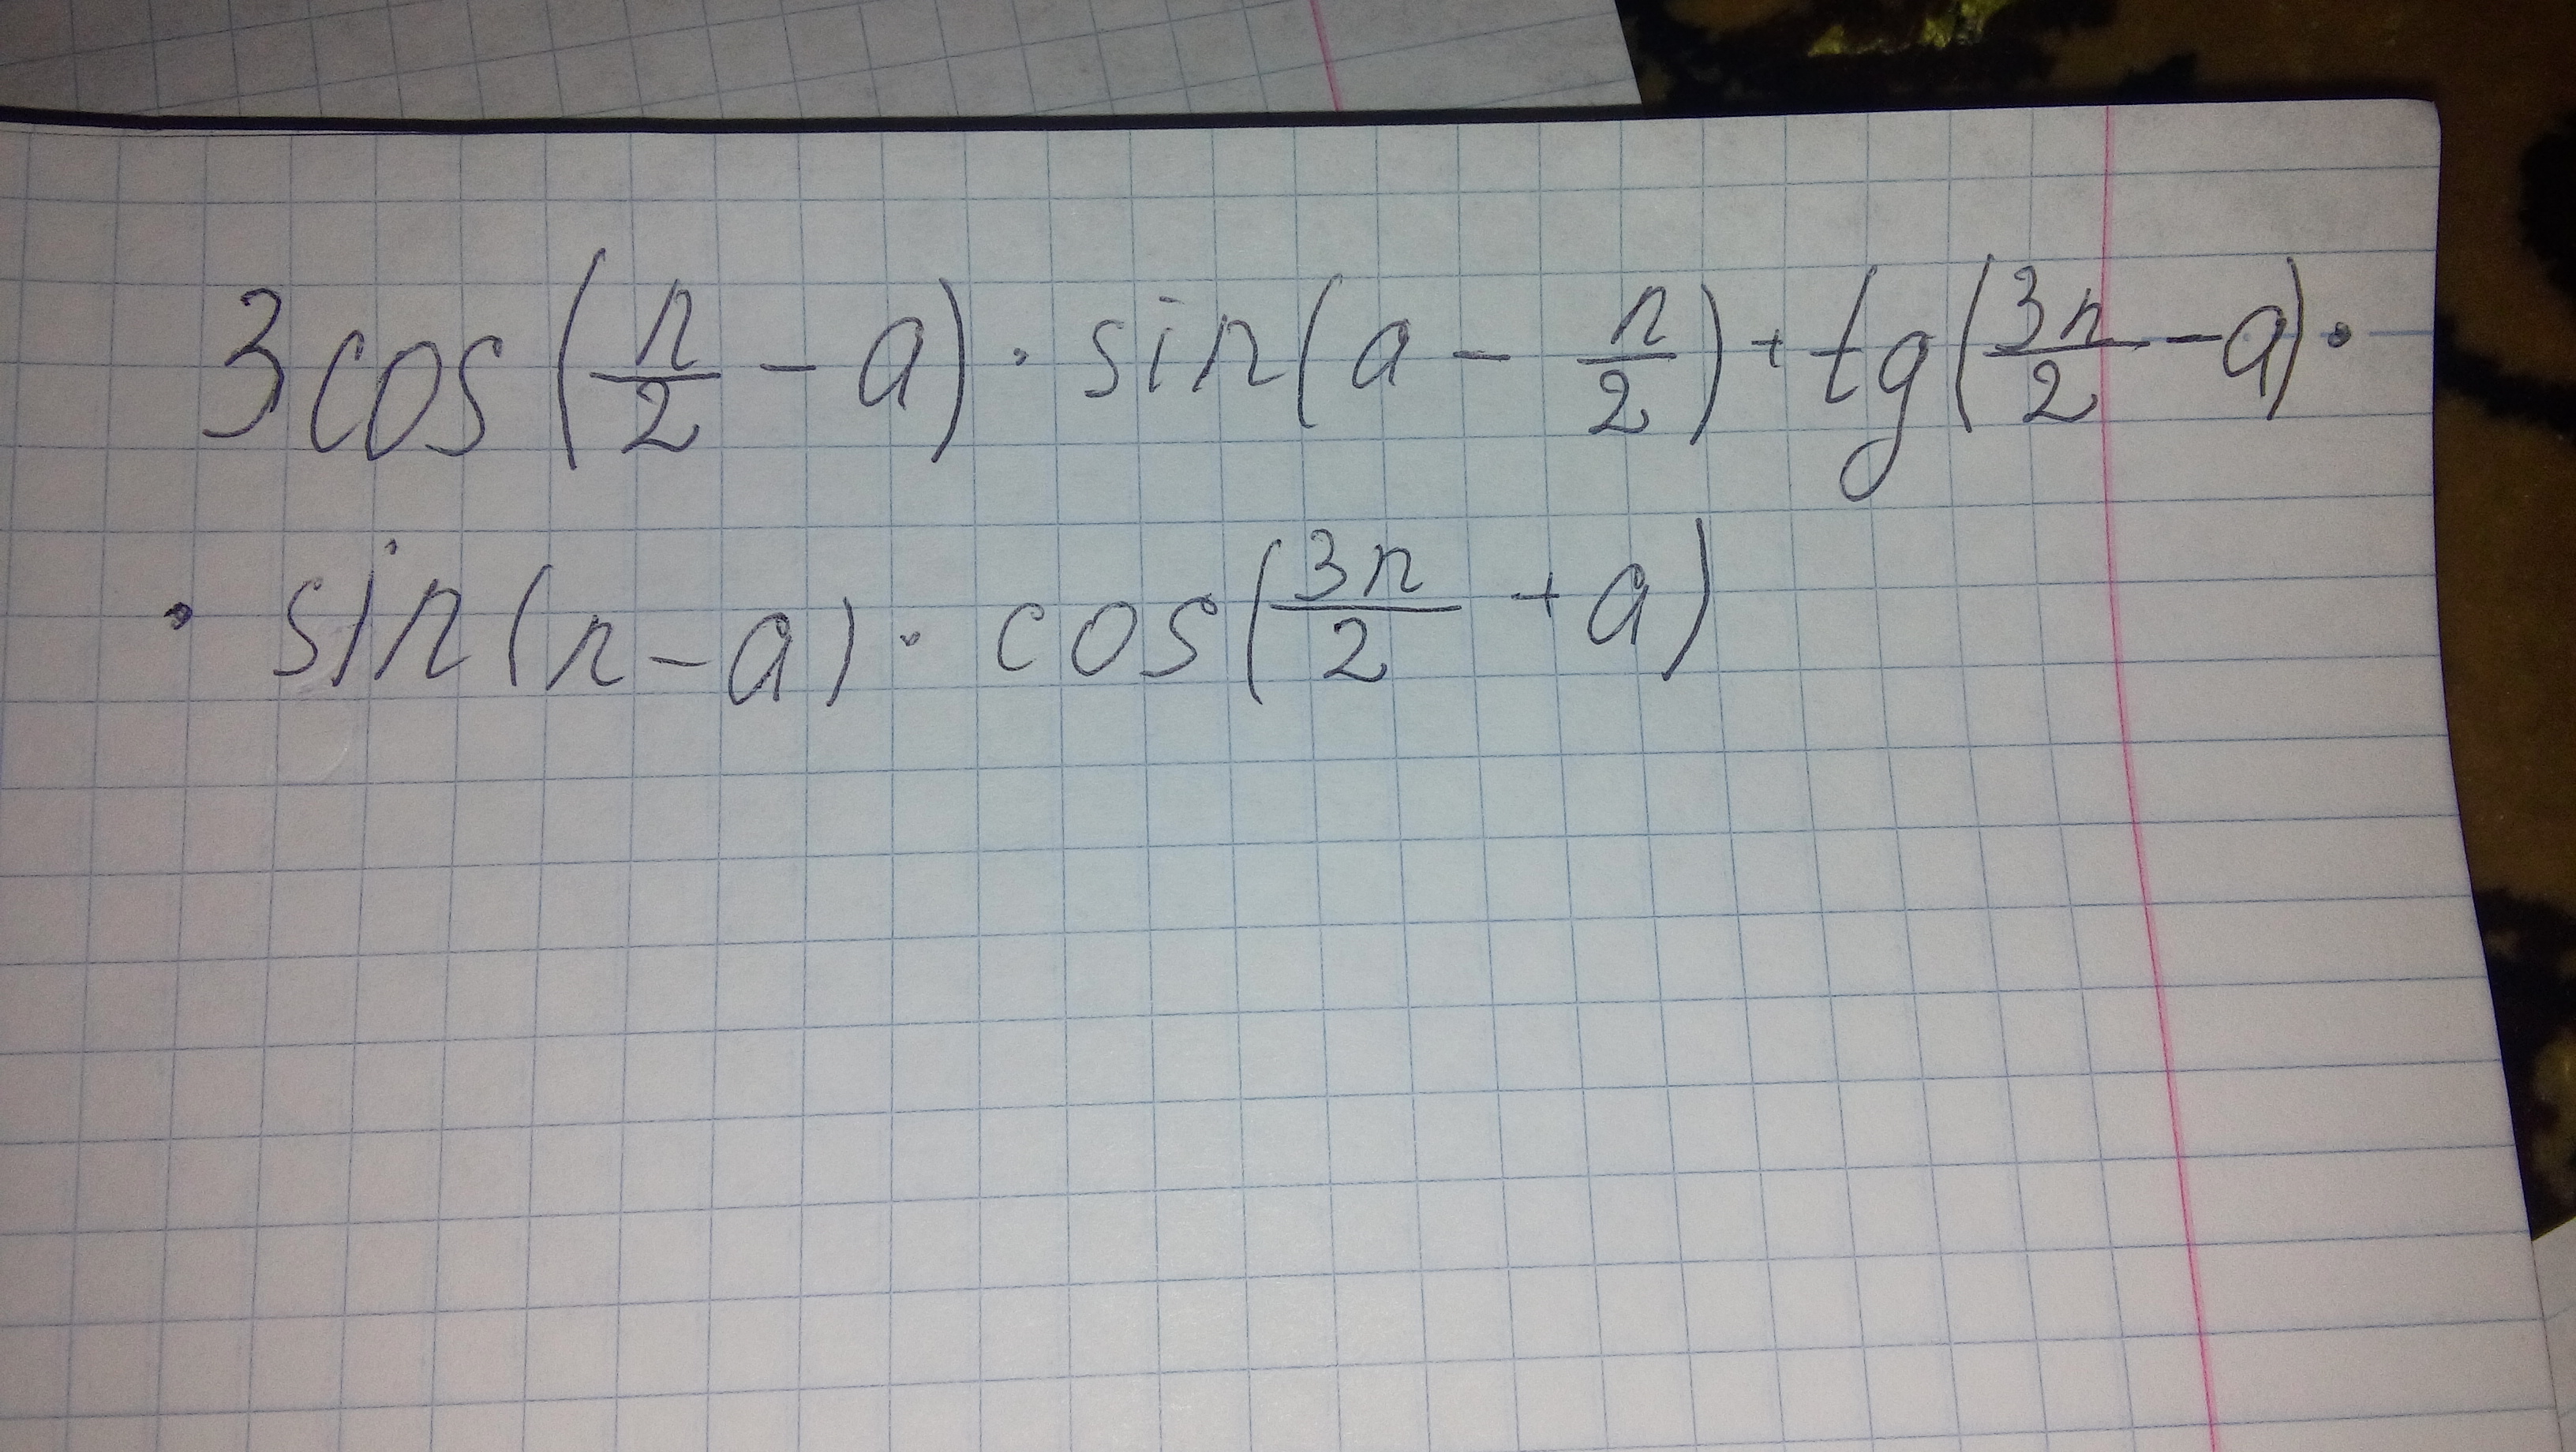 3cos(π/2 - a) · sin(a - π/2) + tg(3π/2 - a) ·
· sin(π - a) · cos(3π/2 + a)